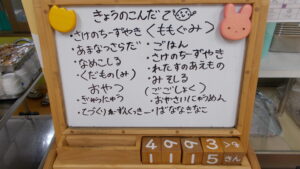 きょうのこんだて
・さけのちーずやき
・あまなつさらだ
・なめこしる
・くだもの(み)
おやつ
・ぎゅうにゅう
・てづくり
くっきー
<ももぐみ>
・ごはん
・さけのちーずやき
・れたすのあえもの
・みそしる
(ごごしょく)
・おやさいにゅうめん
・ばななきなこ
4 3
1 1 1 5 きん